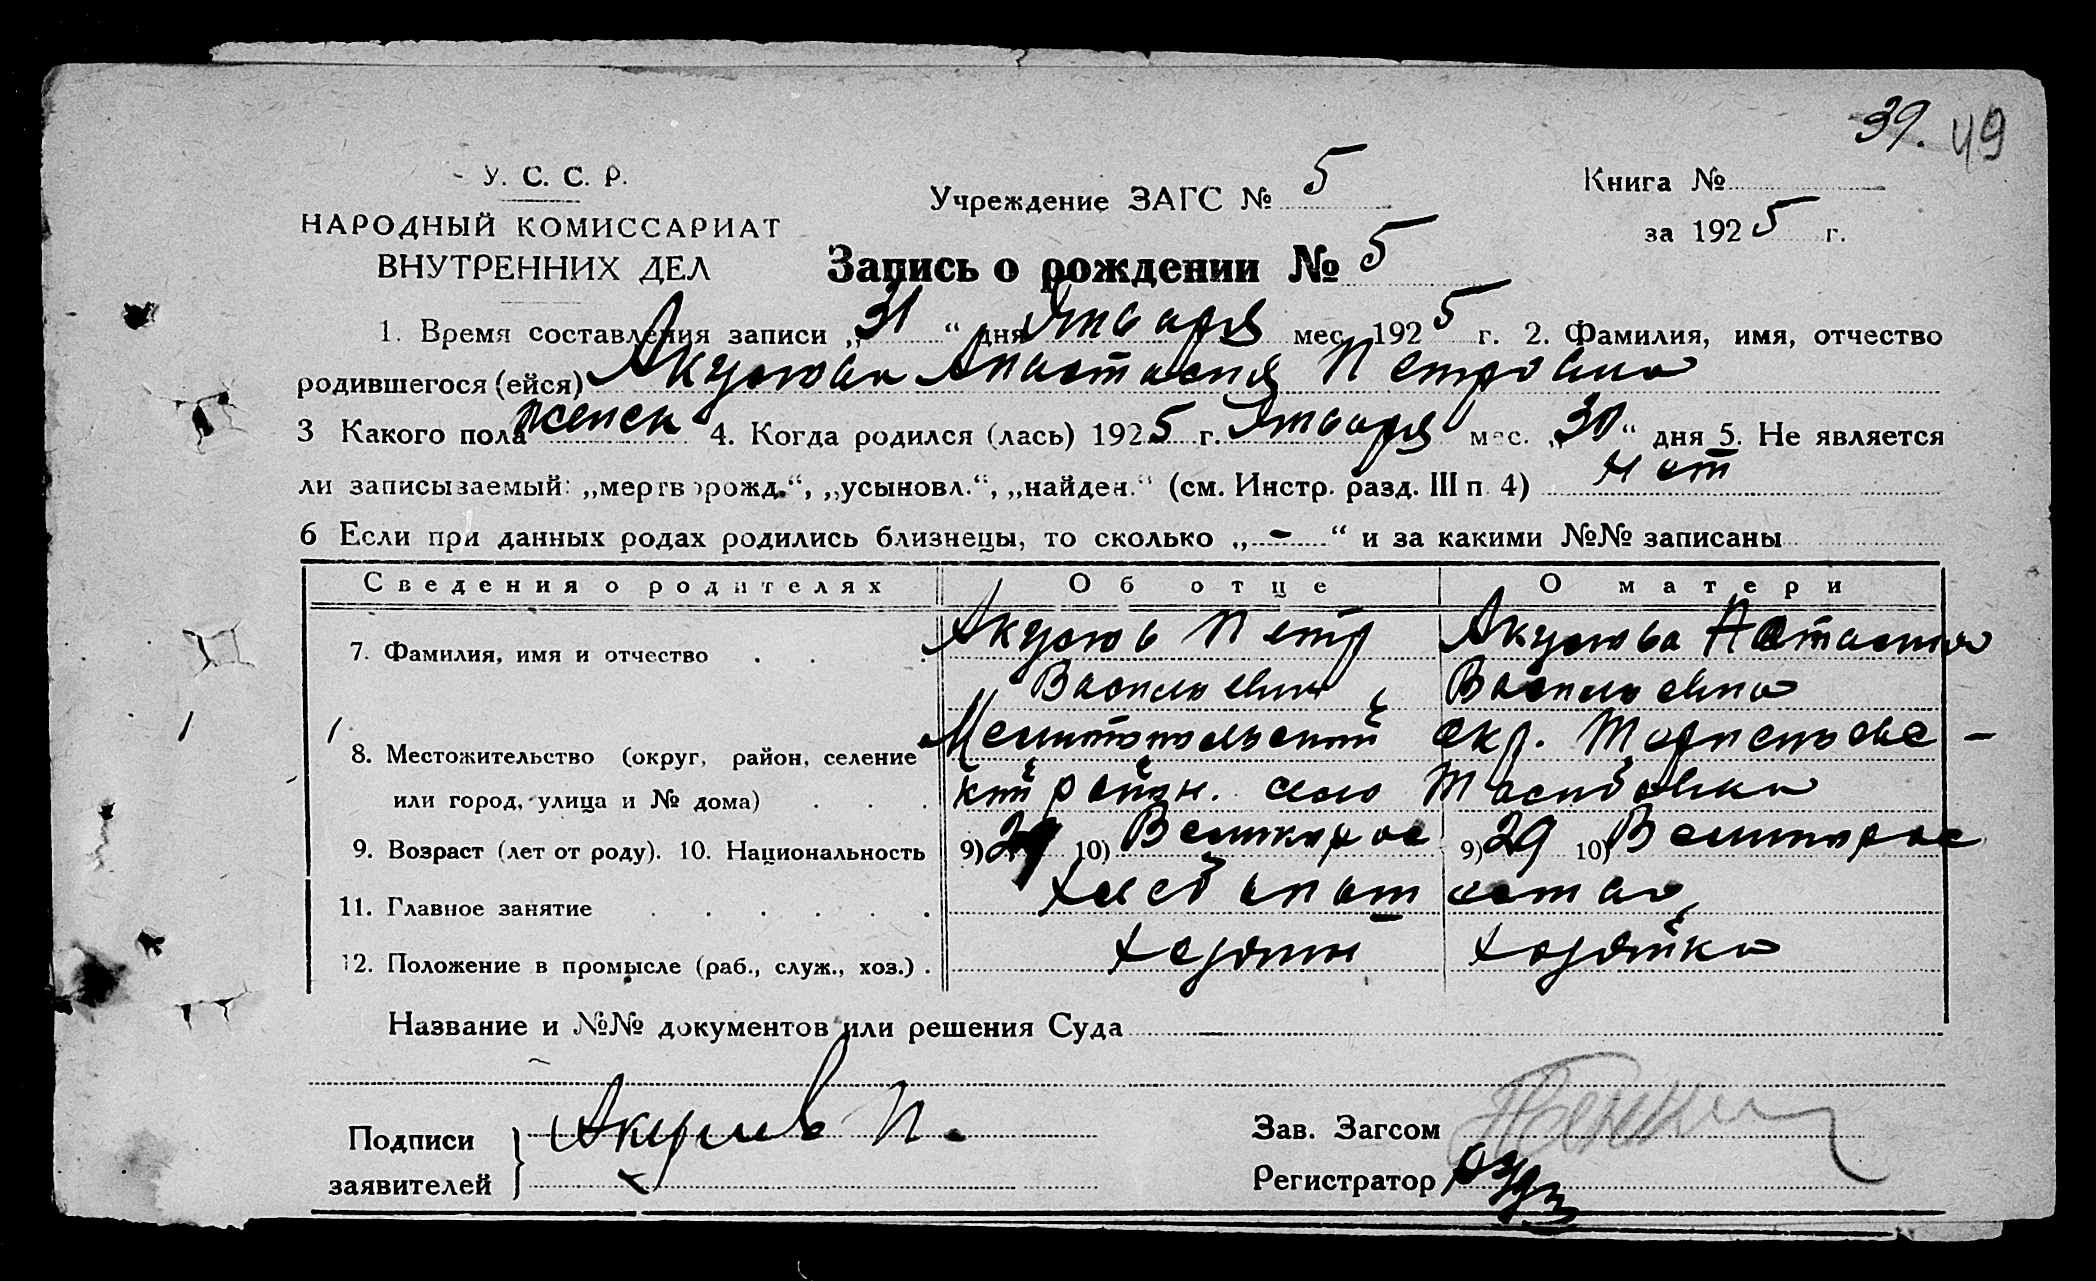 39. 49
У. С. С. Р.
НАРОДНЫЙ КОМИССАРИАТ
ВНУТРЕННИХ ДЕЛ
Учреждение ЗАГС № 5
Книга №
за 1925 г.
Запись о рождении № 5
1. Время составления записи „31“ дня Января мес. 1925 г. 2. Фамилия, имя, отчество
родившегося (ейся) Анастасия Петровна
3 Какого пола женск 4. Когда родился (лась) 1925 г. Января мес. „30“ дня 5. Не является
ли записываемый: „мертворожд.“, „усыновл.“, „найден.“ (см. Инстр. разд. III п. 4) нет
6 Если при данных родах родились близнецы, то сколько „-“ и за какими №№ записаны
Сведения о родителях Об отце О матери
7. Фамилия, имя и отчество Петр
Васильевич Васильевна
8. Местожительство (округ, район, селение Мелитопольский окр.
или город, улица и № дома) кий район. село
9. Возраст (лет от роду). 10. Национальность 9) 29 10) Великорос 9) 29 10) Великорос
11. Главное занятие Хлебопашество
12. Положение в промысле (раб., служ., хоз.) Хозяин Хозяйка
Название и №№ документов или решения Суда
Подписи
заявителей
П.
Зав. Загсом
Регистратор